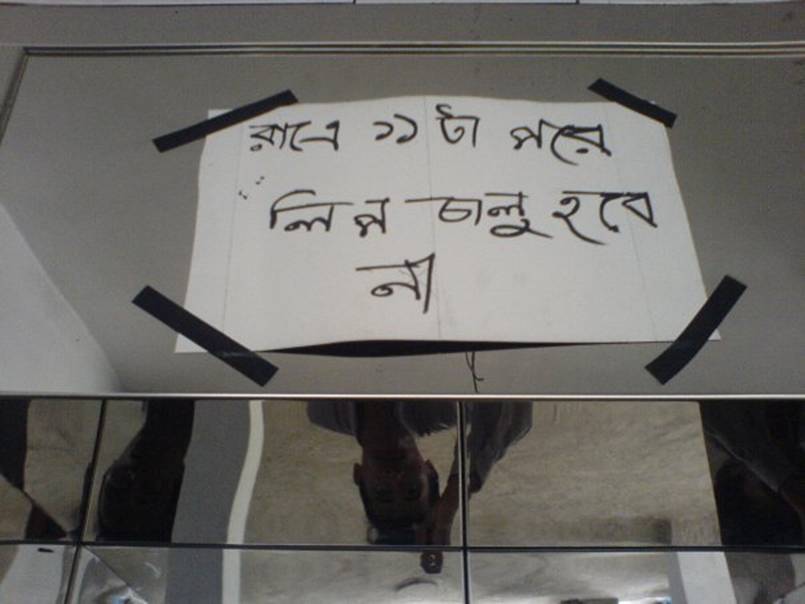 রাত্রে ১১ টা পরে
লিপ্ট চালু হবে
না